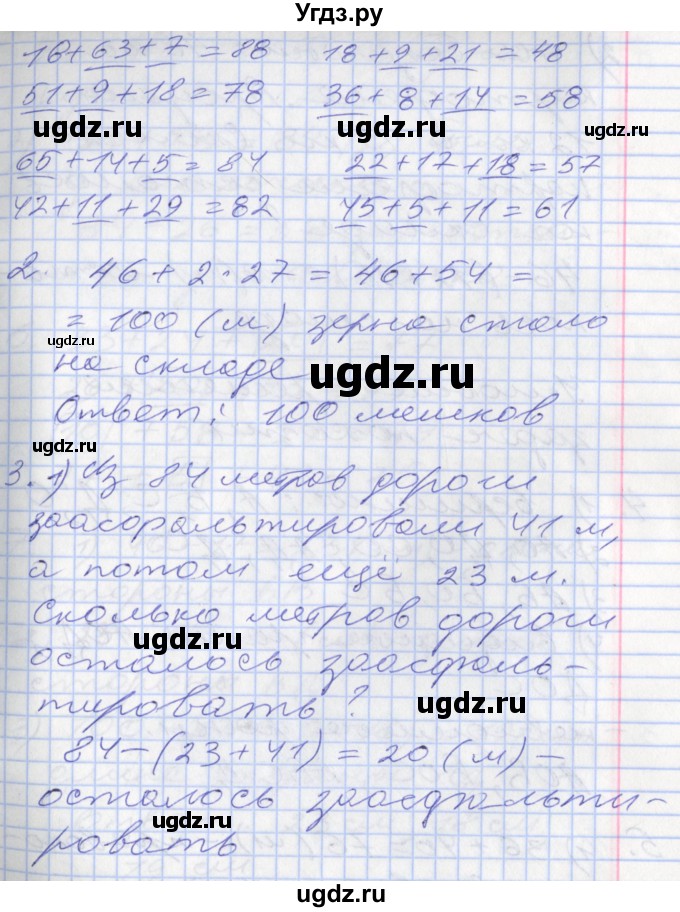 Угдз.ру
16+63+7=88 18+9+21=48
51+9+18=78 36+8+14=58
ugdz.ru ugdz.ru
65+14+5=84 22+17+18=57
42+11+29=82 45+5+11=61
2. 46+2·27=46+54=
=100 (м) зерна стало
на складе
ugdz.ru
Ответ: 100 мешков
3. 1) Из 84 метров дороги
заасфальтировали 41 м,
а потом ещё 23 м.
Сколько метров дороги
ugdz.ru
осталось заасфаль-
ugdz.ru
тировать?
84-(23+41)=20 (м)-
осталось заасфальти-
ugdz.ru
ровать
ugdz.ru
ugdz.ru